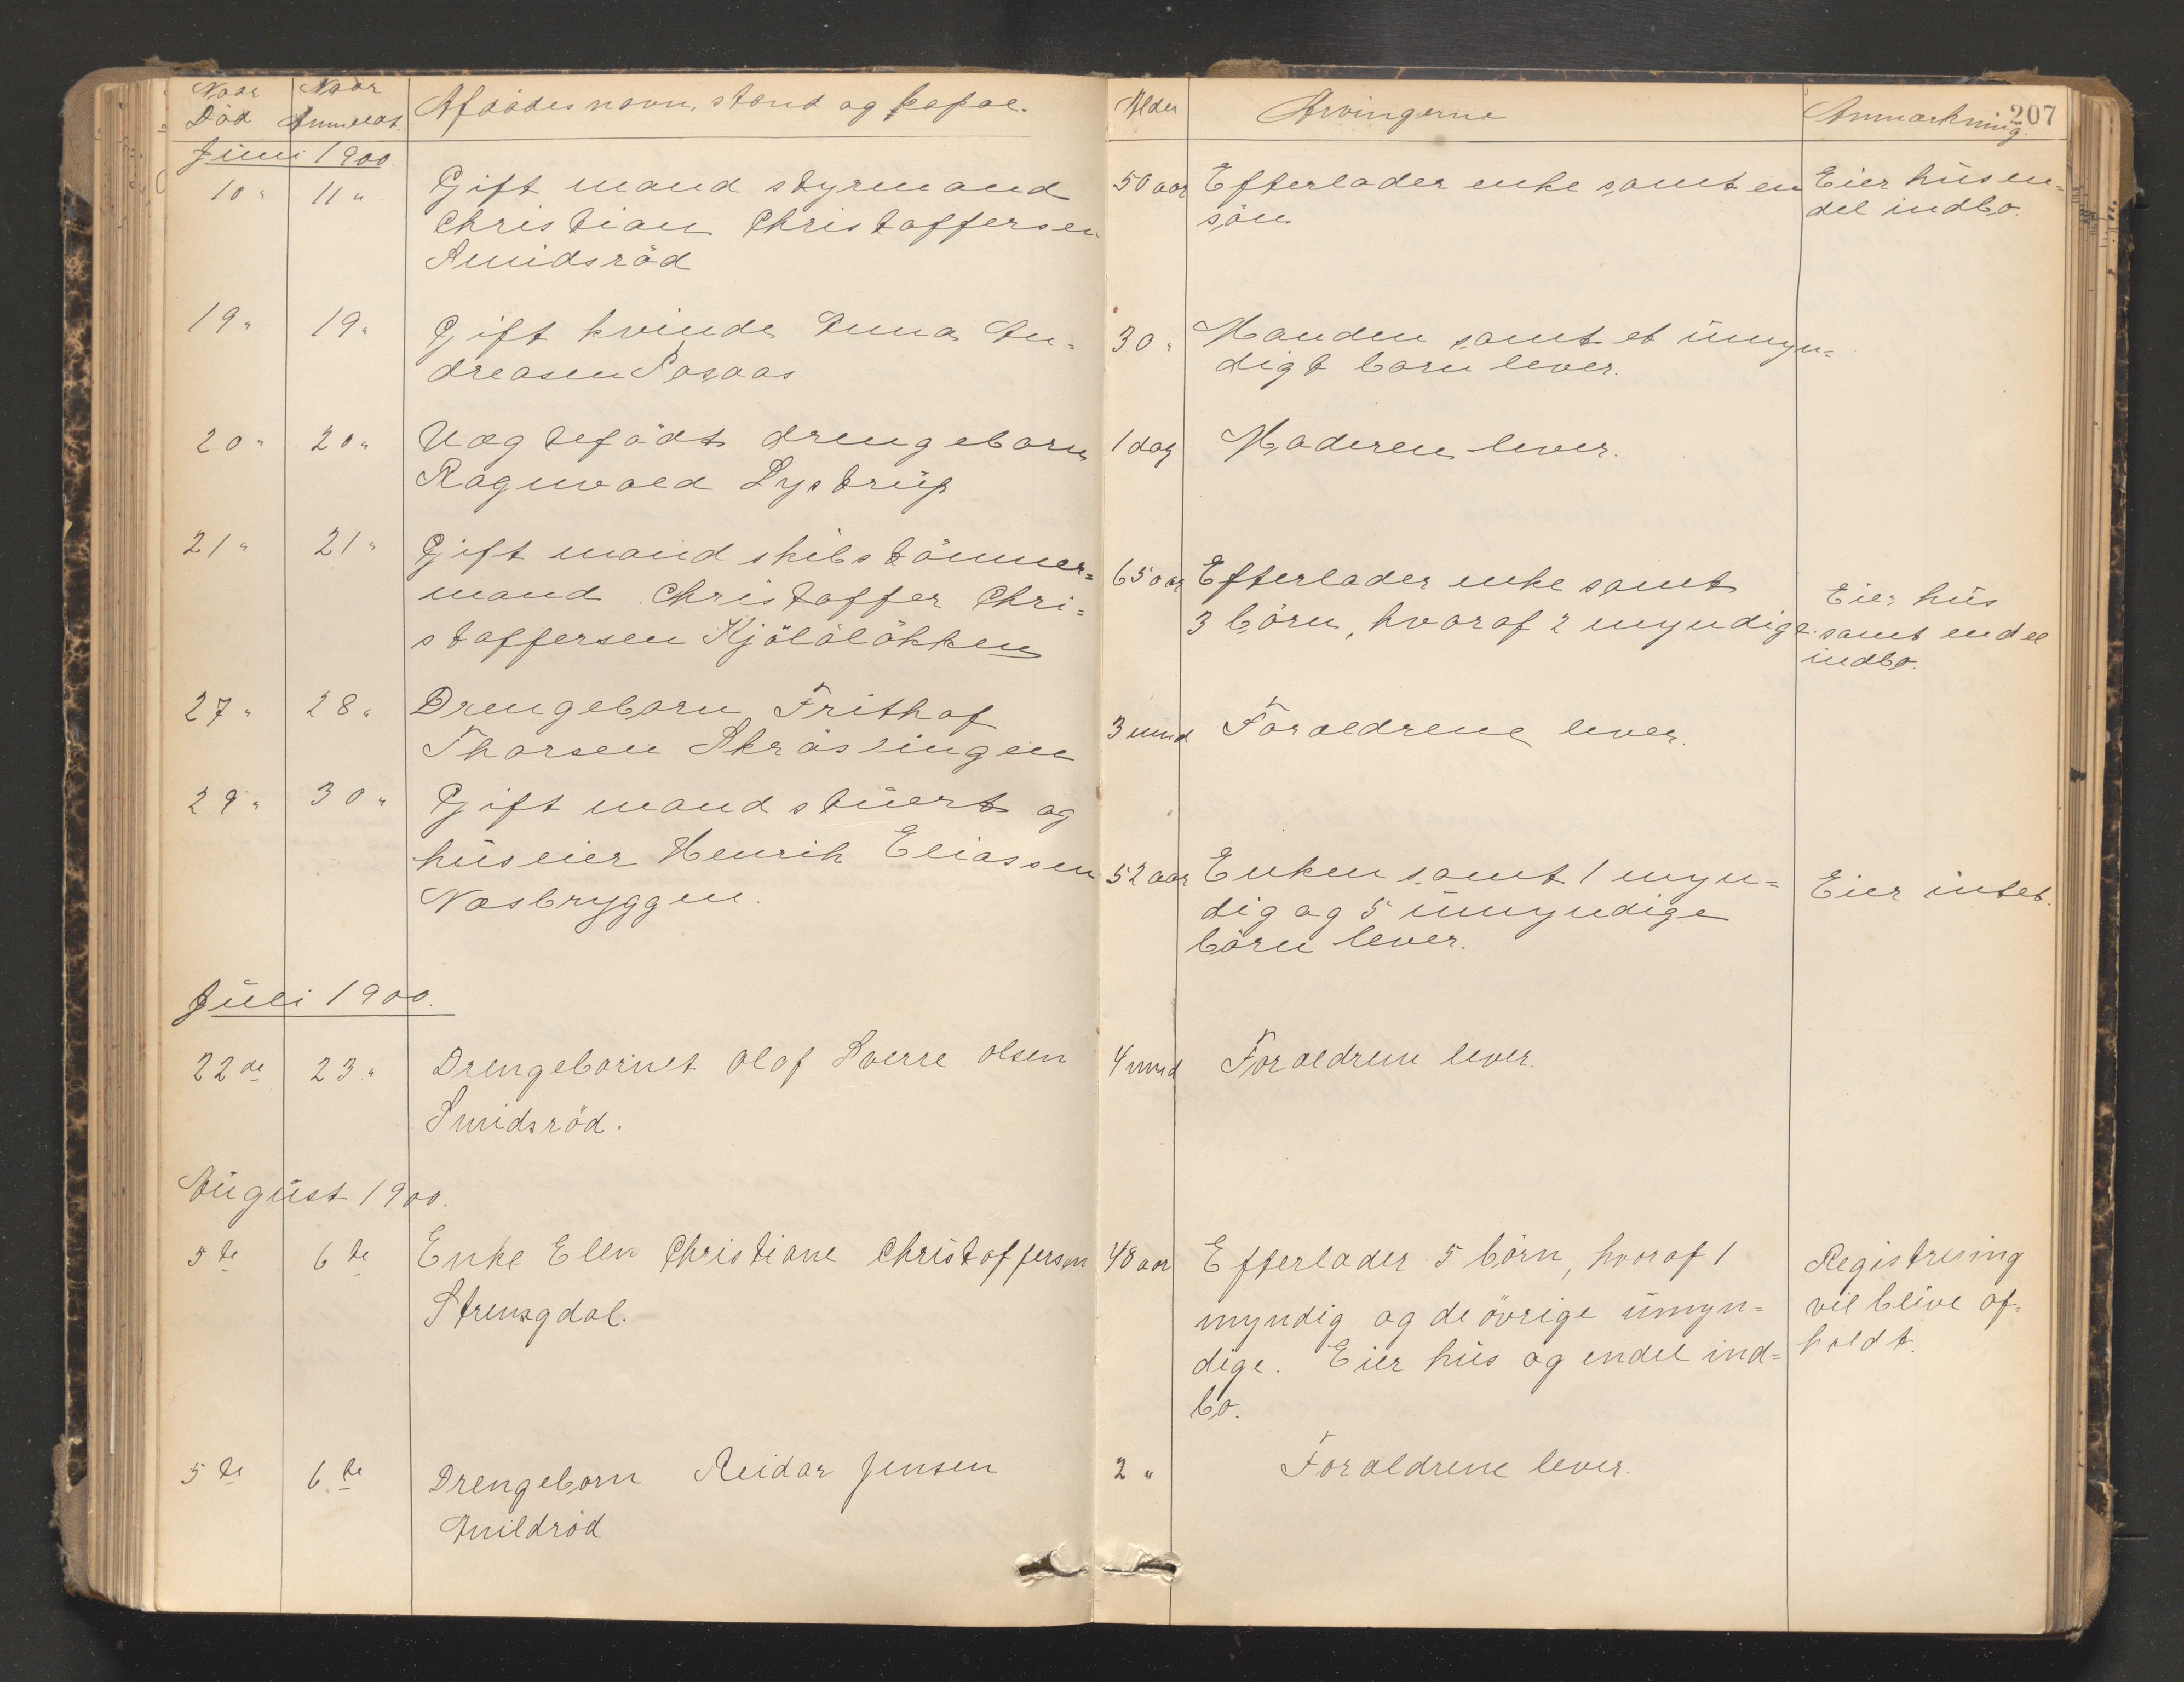 Naar Død Naar Anmeldt. Afdødes navn, stand og bopæl. Alder Arvingerne Anmærkning. 207
Juni 1900
10" 11" Gift mand styrmand 50 aar Efterlader enke samt en Eier hus en=
Christian Christoffersen søn del indbo.
Smidsrød
19" 19" Gift kvinde Anna An= 30" Manden samt et umyn=
dreasen Aasaas digt barn lever.
20" 20" Uægtefødt drengebarn 1 dag Moderen lever.
Ragnvald Lystrup
21" 21" Gift mand skibstømmer= 65 aar Efterlader enke samt Eier hus
mand Christoffer Chri= 3 børn, hvoraf 2 myndige. samt endel
stoffersen Kjøløløkken indbo.
27" 28" Drengebarn Frithof 3 mnd Forældrene lever.
Thorsen Skræslingen
29" 30" Gift mand stuert og
huseier Henrik Eliassen 52 aar Enken samt 1 myn= Eier intet.
Næsbryggen. dig og 5 umyndige
børn lever.
Juli 1900.
22de 23" Drengebarnet Olaf Sverre Olsen 4 mnd Forældrene lever.
Smidsrød.
August 1900.
5te 6te Enke Elen Christiane Christoffersen 48 aar Efterlader 5 børn, hvoraf 1 Registrering
Strengsdal. myndig og de øvrige umyn= vil blive af=
dige. Eier hus og endel ind= holdt.
bo.
5te 6te Drengebarn Reidar Jensen 2" Forældrene lever.
Hvildrød